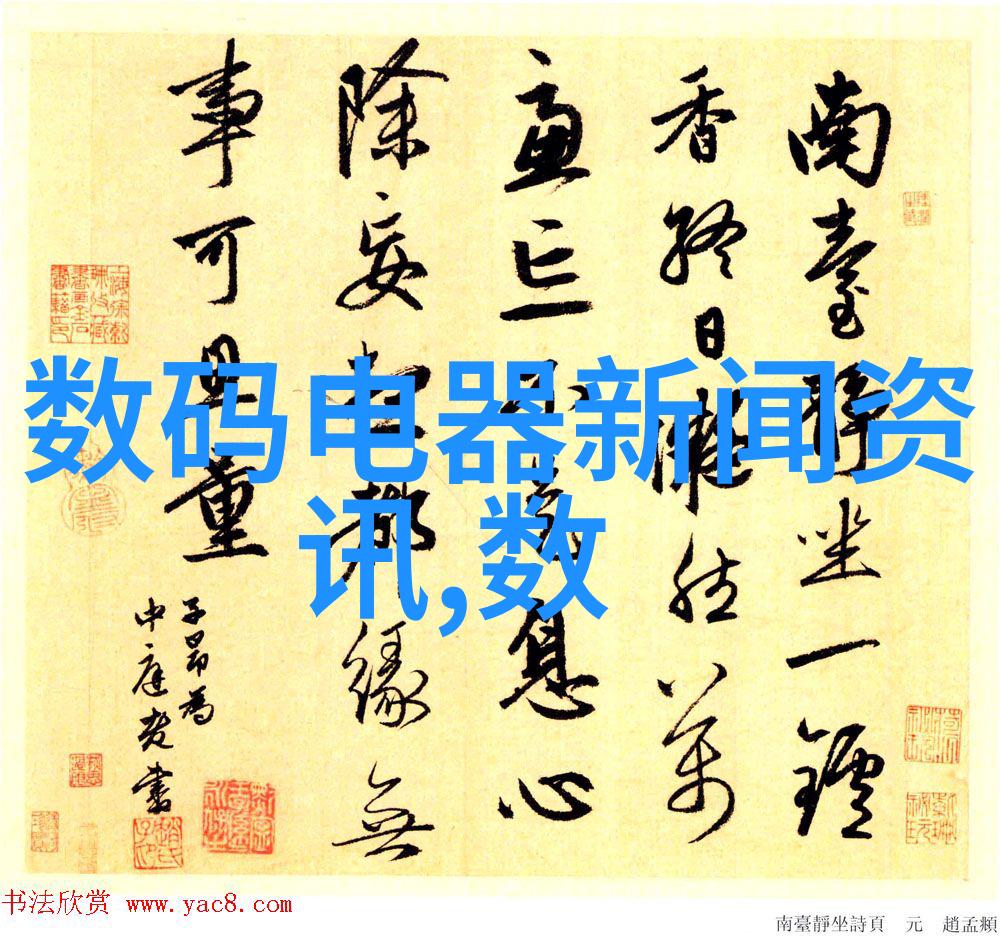 南臺靜坐一鑪
香終日凝然萬
慮亡不是息心
除妄想都緣無
事可思量
子昂為
中庭老書
数码电器新闻资
讯,数
书法欣赏 www.yac8.com
南臺靜坐詩頁 元 趙孟頫